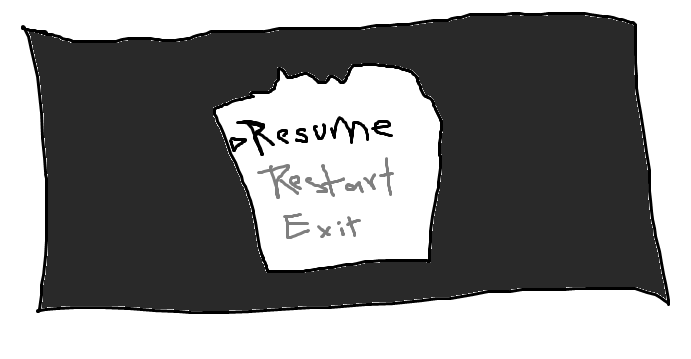 Resume
Restart
Exit